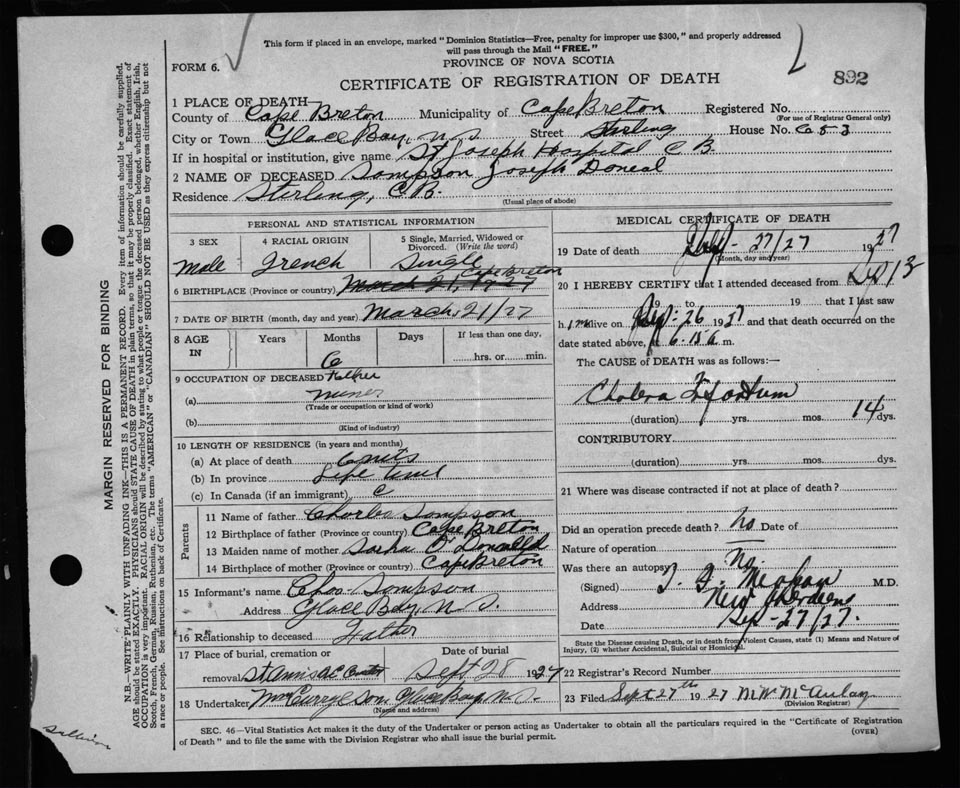 This form if placed in an envelope, marked "Dominion Statistics—Free, penalty for improper use $300," and properly addressed
will pass through the Mail "FREE."
FORM 6.
PROVINCE OF NOVA SCOTIA
892
CERTIFICATE OF REGISTRATION OF DEATH
MARGIN RESERVED FOR BINDING
N.B.—WRITE PLAINLY WITH UNFADING INK—THIS IS A PERMANENT RECORD. Every item of information should be carefully supplied.
AGE should be stated EXACTLY. PHYSICIANS should STATE CAUSE OF DEATH in plain terms, so that it may be properly classified. Exact statement of
OCCUPATION is very important. RACIAL ORIGIN will be described by stating to what people or tongue the deceased person belonged, whether English, Irish,
Scotch, French, German, Russian, Ruthenian, etc. The terms "AMERICAN" or "CANADIAN" SHOULD NOT BE USED as they express citizenship but not
a race or people. See instructions on back of Certificate.
1 PLACE OF DEATH
County of Cape Breton Municipality of Cape Breton Registered No.
(For use of Registrar General only)
City or Town Glace Bay, N.S. Street Sterling House No.
If in hospital or institution, give name St Joseph Hospital C B.
2 NAME OF DECEASED Sampson Joseph Doneal
Residence Sterling, C.B.
(Usual place of abode)
PERSONAL AND STATISTICAL INFORMATION
3 SEX 4 RACIAL ORIGIN 5 Single, Married, Widowed or
Divorced. (Write the word)
Male French Single
Cape Breton
6 BIRTHPLACE (Province or country) March 21, 1927
7 DATE OF BIRTH (month, day and year) March, 21/27
8 AGE IN Years Months Days If less than one day,
6 hrs. or min.
9 OCCUPATION OF DECEASED Father
(a) miner
(Trade or occupation or kind of work)
(b)
(Kind of industry)
10 LENGTH OF RESIDENCE (in years and months)
(a) At place of death 6 mts
(b) In province Life time
(c) In Canada (if an immigrant)
Parents
11 Name of father Charles Sampson
12 Birthplace of father (Province or country) Cape Breton
13 Maiden name of mother
14 Birthplace of mother (Province or Country) Cape Breton
15 Informant's name Chas Sampson
Address Glace Bay N.S.
16 Relationship to deceased Father
17 Place of burial, cremation or Date of burial
removal St Anns Sept 28 1927
18 Undertaker Glace Bay N.S.
(Name and address)
MEDICAL CERTIFICATE OF DEATH
19 Date of death Sept - 27/27 1927
(Month, day and year)
20 I HEREBY CERTIFY that I attended deceased from Sep 13
19 to 19 that I last saw
him alive on Sep: 26 1927 and that death occurred on the
date stated above, at 6.15 a m.
The CAUSE OF DEATH was as follows:—
Cholera Infantum
(duration) yrs. mos. 14 dys.
CONTRIBUTORY
(duration) yrs. mos. dys.
21 Where was disease contracted if not at place of death?
Did an operation precede death? No Date of
Nature of operation
Was there an autopsy? No
(Signed) M.D.
Address New Aberdeen
Date Sep - 27/27.
State the Disease causing Death, or in death from Violent Causes, state (1) Means and Nature of
Injury, (2) whether Accidental, Suicidal or Homicidal.
22 Registrar's Record Number
23 Filed Sept 27th 1927 M.W. McAulay
(Division Registrar)
SEC. 46—Vital Statistics Act makes it the duty of the Undertaker or person acting as Undertaker to obtain all the particulars required in the "Certificate of Registration
of Death" and to file the same with the Division Registrar who shall issue the burial permit.
(OVER)